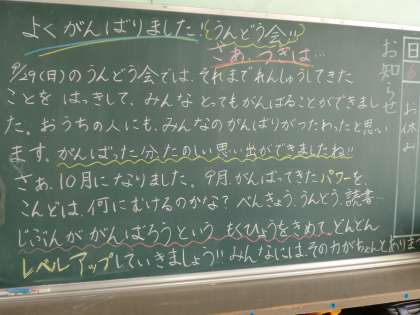 よくがんばりました!! うんどう会!!
さぁ、つぎは…
9/29(日)のうんどう会では、それまでれんしゅうしてきた
ことをはっきして、みんなとってもがんばることができまし
た。おうちの人にも、みんなのがんばりがつたわったと思い
ます。がんばった分、たのしい思い出ができましたね!!
さぁ、10月になりました。9月、がんばってきたパワーを
こんどは、何にむけるのかな?べんきょう、うんどう、読書…
じぶんががんばろうという、もくひょうをきめて、どんどん
レベルアップしていきましょう!!みんなには、その力がちゃんとありま
お知らせ
日